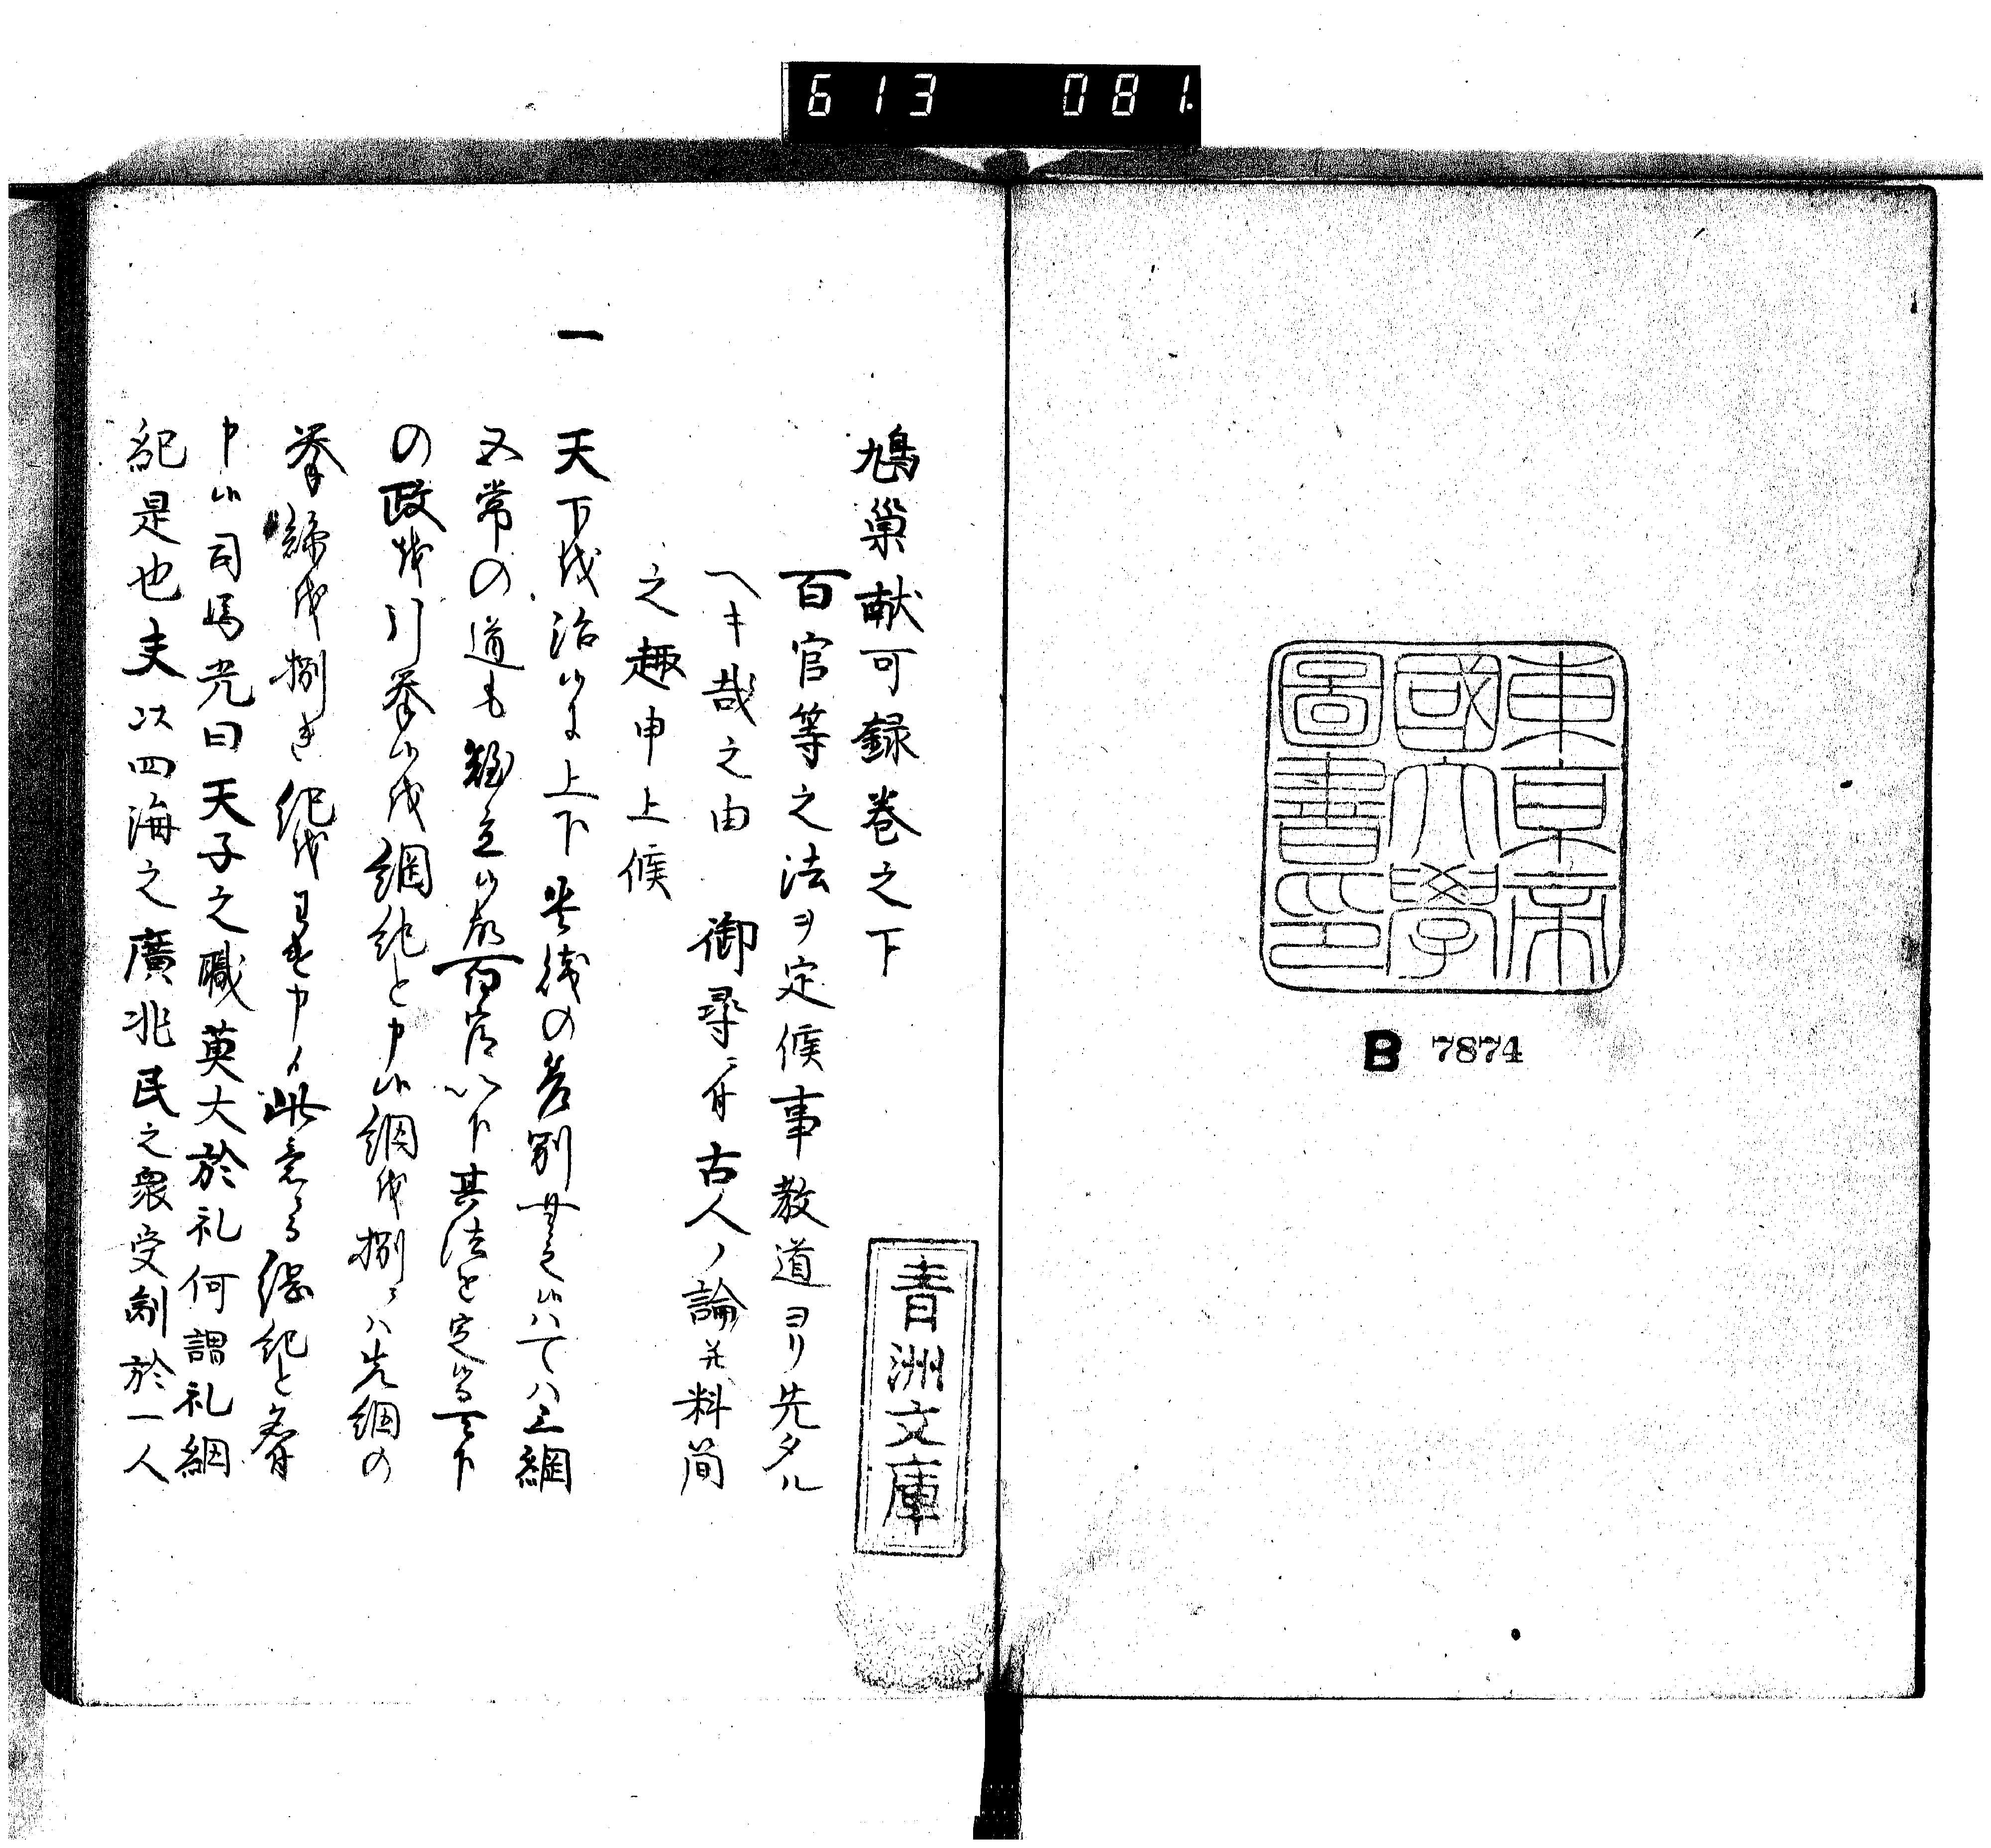 613 081.
東京帝
國大學
圖書印
B 7874
青洲文庫
鳩巣献可録巻之下
百官等之法ヲ定候事教道ヨリ先タル
ヘキ哉之由 御尋ニ付古人ノ論并料簡
之趣申上候
一 天下を治候は上下貴賤の差別無之候ハてハ三綱
五常の道も難立候故百官以下其法を定候る天下
の政を引挙候を綱紀と申候綱を捌くハ先綱の
挙 を捌き紀を 申候此意る綱紀と
申候司馬光曰天子之職莫大於礼何謂礼綱
紀是也夫以四海之廣兆民之衆受制於一人